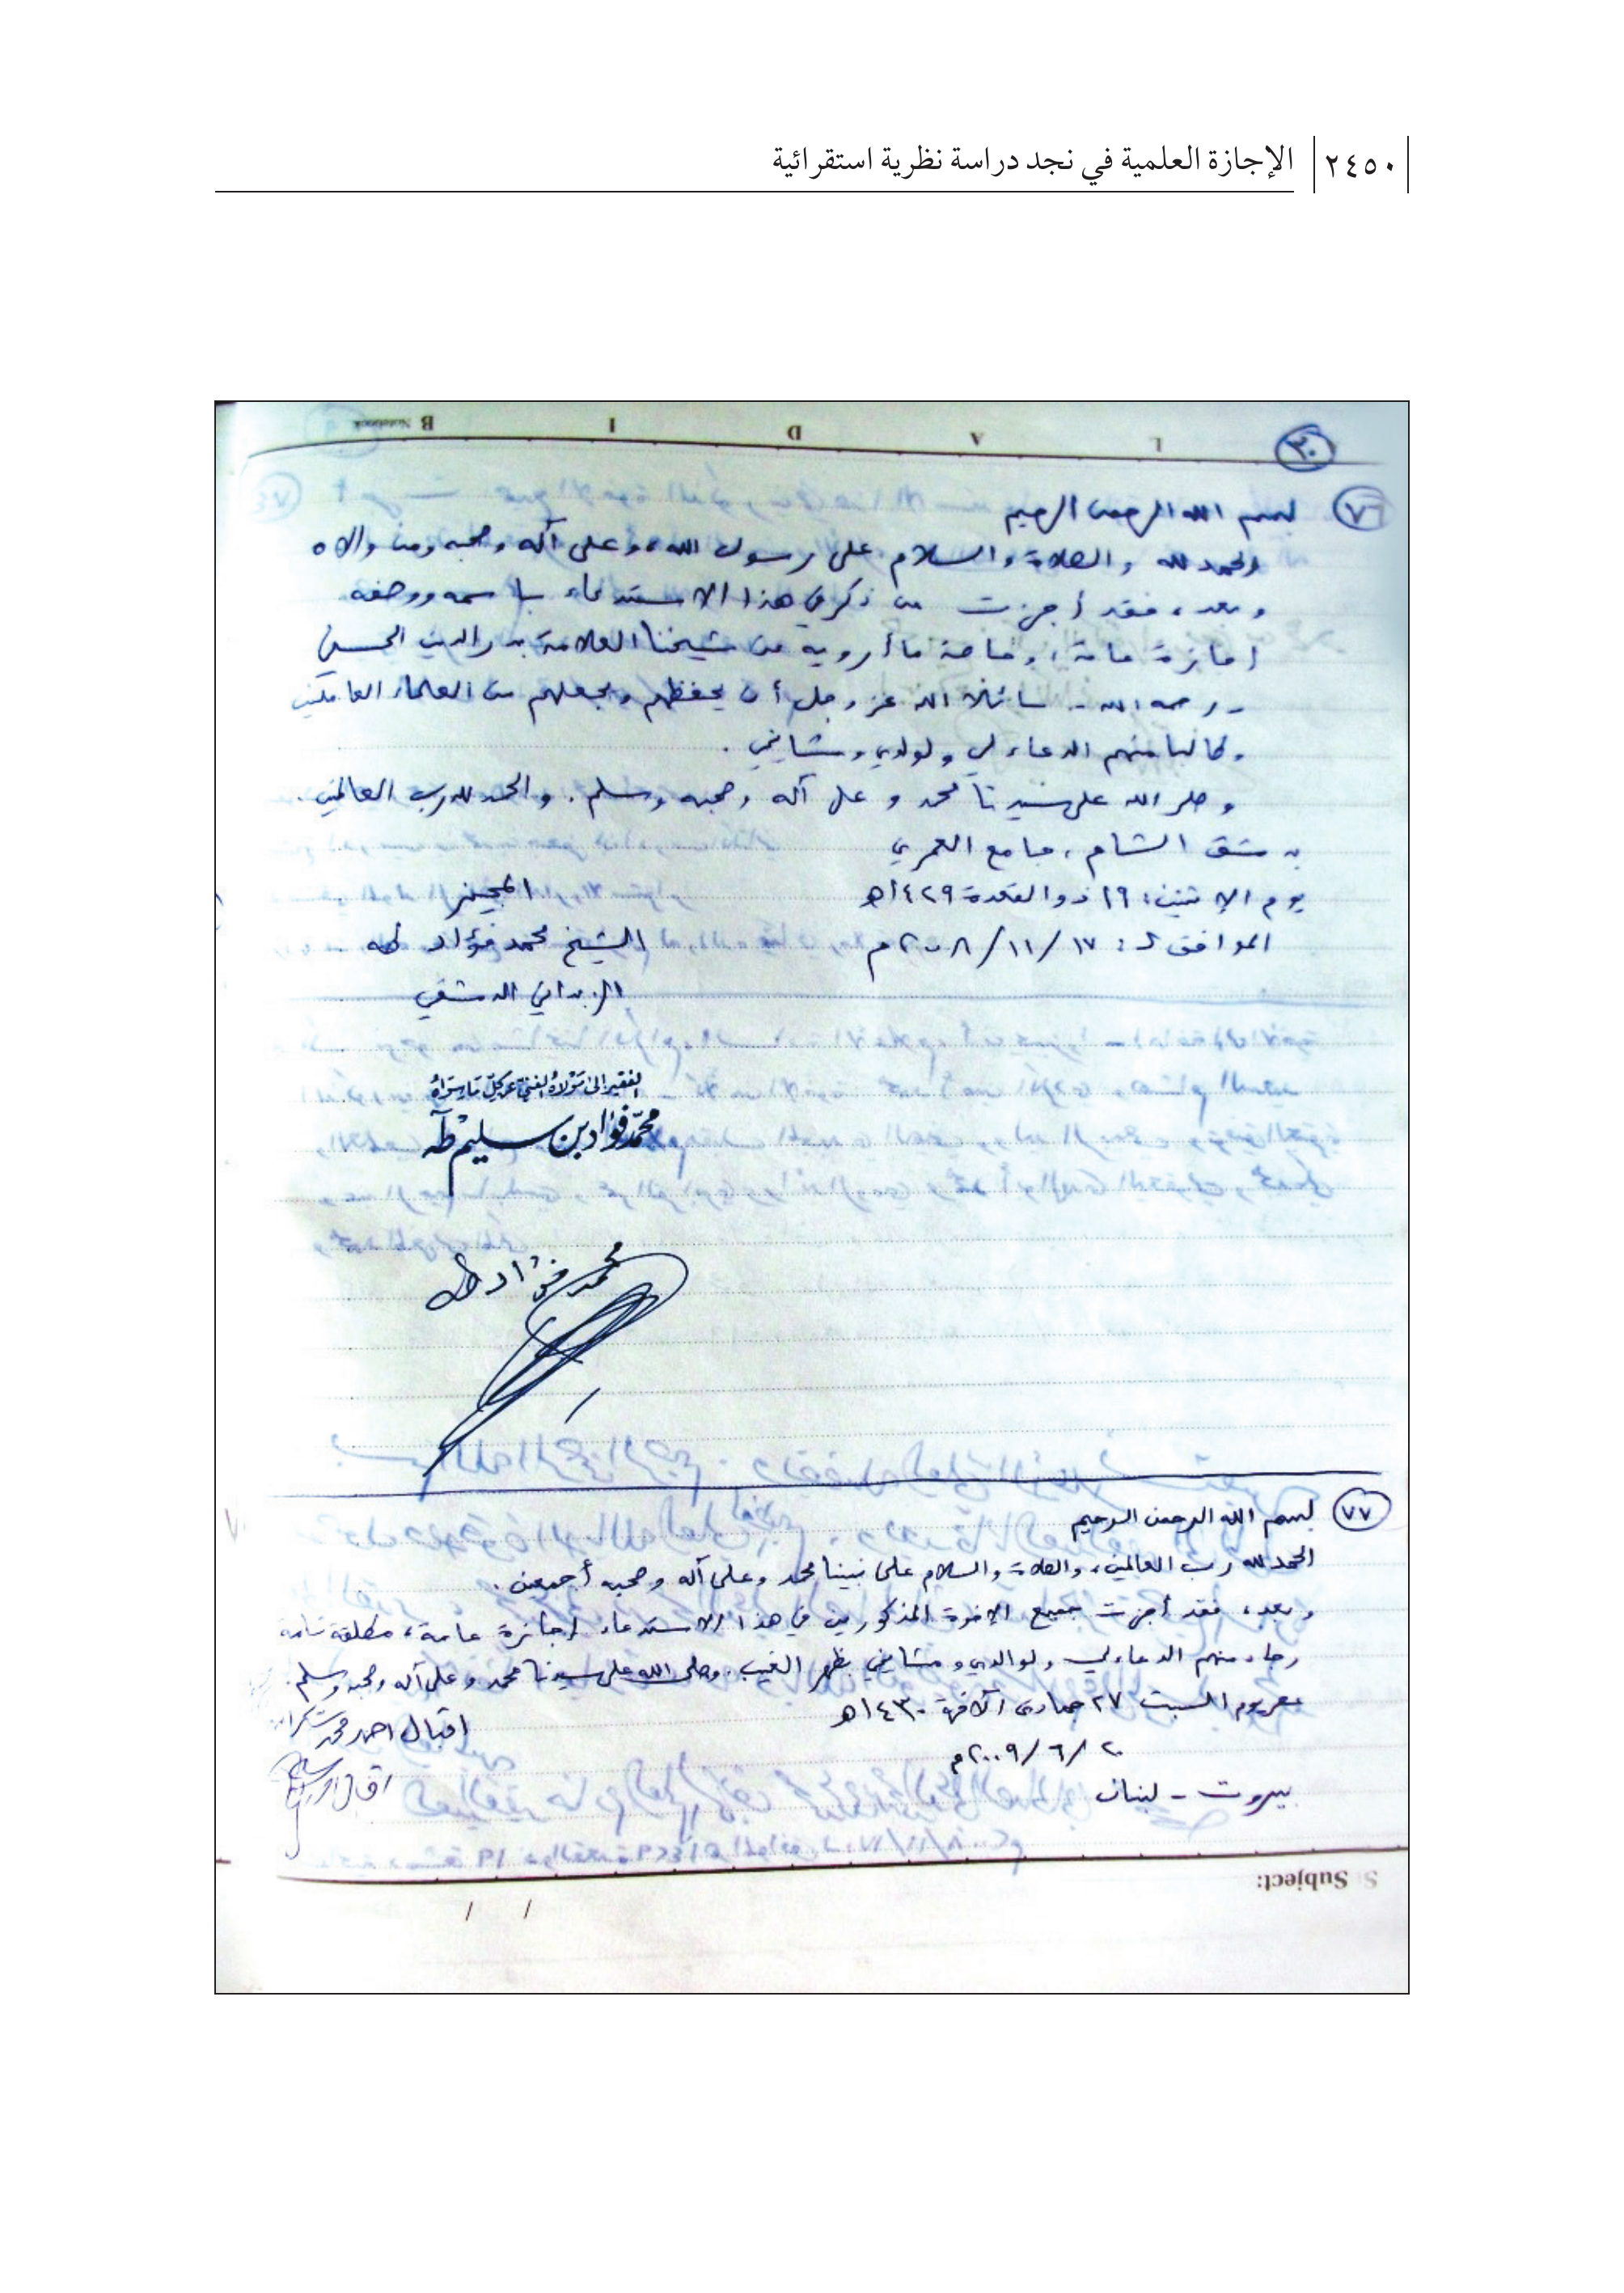 ٢٤٥٠ الإجازة العلمية في نجد دراسة نظرية استقرائية
LADIB Notebook
٣٠
٧٦ بسم الله الرحمن الرحيم
الحمد لله والصلاة والسلام على رسول الله، وعلى آله وصحبه ومن والاه
وبعد، فقد أجزت من ذكر في هذا الاستدعاء باسمه ووصفه
إجازة عامة، وخاصة ما أرويه عن شيخنا العلامة بدر الدين الحسني
- رحمه الله - سائلا الله عز وجل أن يحفظهم ويجعلهم من العلماء العاملين
وطالبا منهم الدعاء لي ولوالدي ومشايخي .
وصلى الله على سيدنا محمد وعلى آله وصحبه وسلم . والحمد لله رب العالمين .
بدمشق الشام، جامع العمري
يوم الاثنين: ١٩ ذو القعدة ١٤٢٩هـ المجيز
الموافق لـ: ١٧/١١/٢٠٠٨م الشيخ محمد فؤاد طه
الزبداني الدمشقي
الفقير إلى مولاه الغني عن كل ما سواه
محمد فؤاد بن سليم طه
محمد فؤاد طه
٧٧ بسم الله الرحمن الرحيم
الحمد لله رب العالمين، والصلاة والسلام على نبينا محمد وعلى آله وصحبه أجمعين .
وبعد، فقد أجزت جميع الإخوة المذكورين في هذا الاستدعاء إجازة عامة، مطلقة تامة
رجاء منهم الدعاء لي ولوالدي ومشايخي بظهر الغيب. وصلى الله على سيدنا محمد وعلى آله وصحبه وسلم.
عصر يوم السبت ٢٧ جمادى الآخرة ١٤٣٠هـ اقبال احمد محمد
٢٠/٦/٢٠٠٩م
بيروت - لبنان
Subject:
/ /